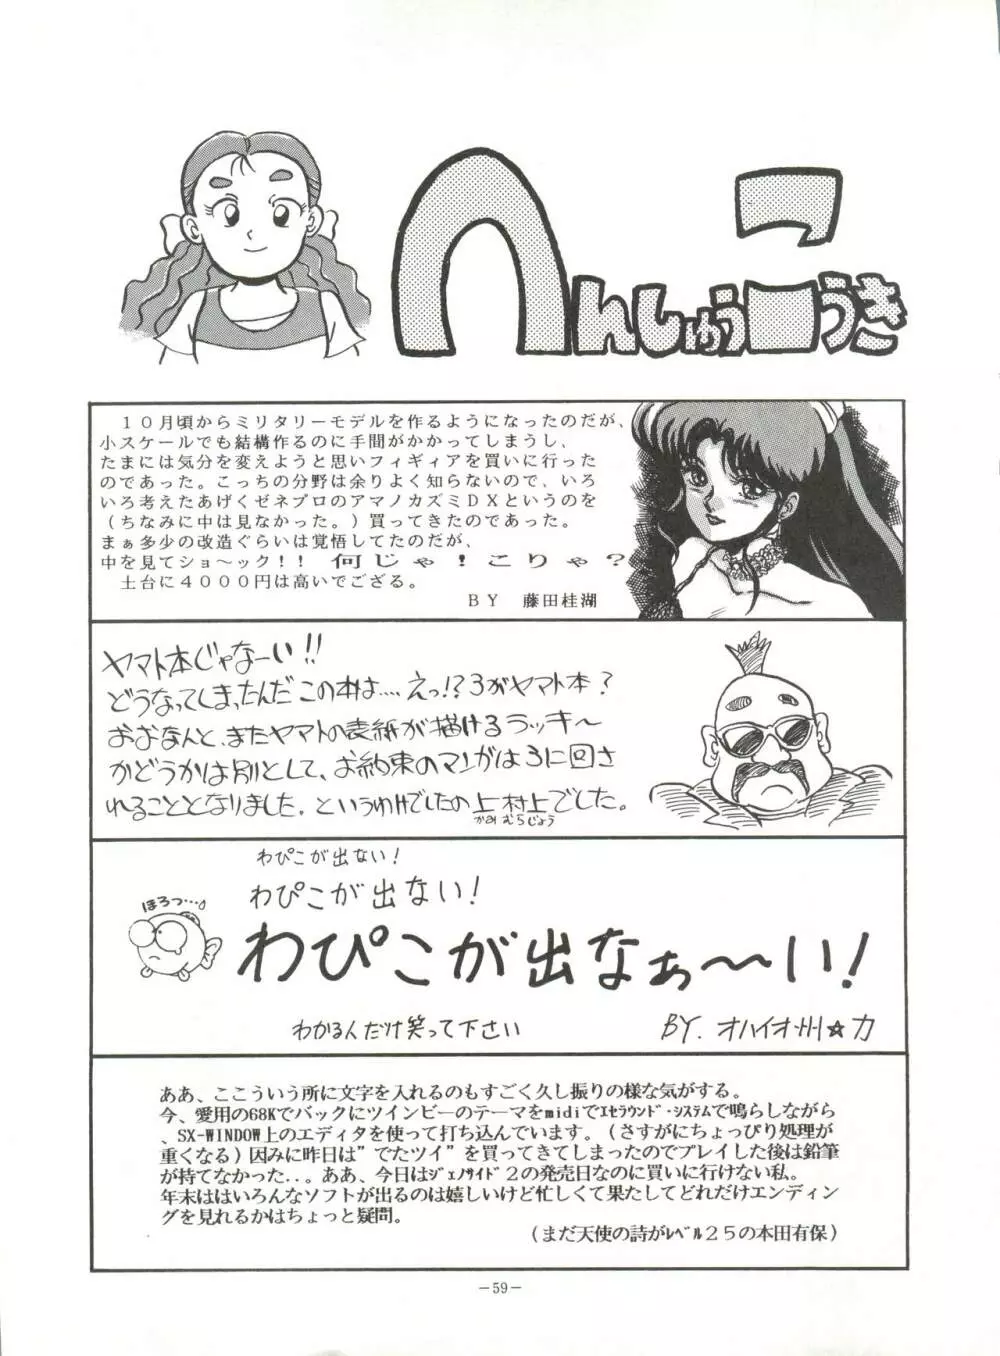 へんしゅうこうき
１０月頃からミリタリーモデルを作るようになったのだが、
小スケールでも結構作るのに手間がかかってしまうし、
たまには気分を変えようと思いフィギィアを買いに行った
のであった。こっちの分野は余りよく知らないので、いろ
いろ考えたあげくゼネプロのアマノカズミＤＸというのを
（ちなみに中は見なかった。）買ってきたのであった。
まぁ多少の改造ぐらいは覚悟してたのだが、
中を見てショ〜ック！！　何じゃ！こりゃ？
土台に４０００円は高いでござる。
ＢＹ　藤田桂湖
ヤマト本じゃなーい!!
どうなってしまったんだこの本は….えっ!?3がヤマト本?
おおなんと、またヤマトの表紙が描けるラッキ〜
かどうかは別として、お約束のマンガは3に回さ
れることとなりました。というわけでしたの上村上でした。
かみむらじょう
わぴこが出ない!
わぴこが出ない!
ほろっ…
わぴこが出なぁ〜〜い!
わかるんだけ笑って下さい
BY.オハイオ州☆力
ああ、ここういう所に文字を入れるのもすごく久し振りの様な気がする。
今、愛用の68Kでバックにツインビーのテーマをmidiでｴｾﾗｳﾝﾄﾞ･ｼｽﾃﾑで鳴らしながら
、SX-WINDOW上のエディタを使って打ち込んでいます。（さすがにちょっぴり処理が
重くなる）因みに昨日は”でたツイ”を買ってきてしまったのでプレイした後は鉛筆
が持てなかった．．。ああ、今日はｼﾞｪﾉｻｲﾄﾞ２の発売日なのに買いに行けない私。
年末ははいろんなソフトが出るのは嬉しいけど忙しくて果たしてどれだけエンディン
グを見れるかはちょっと疑問。
（まだ天使の詩がﾚﾍﾞﾙ２５の本田有保）
－59－